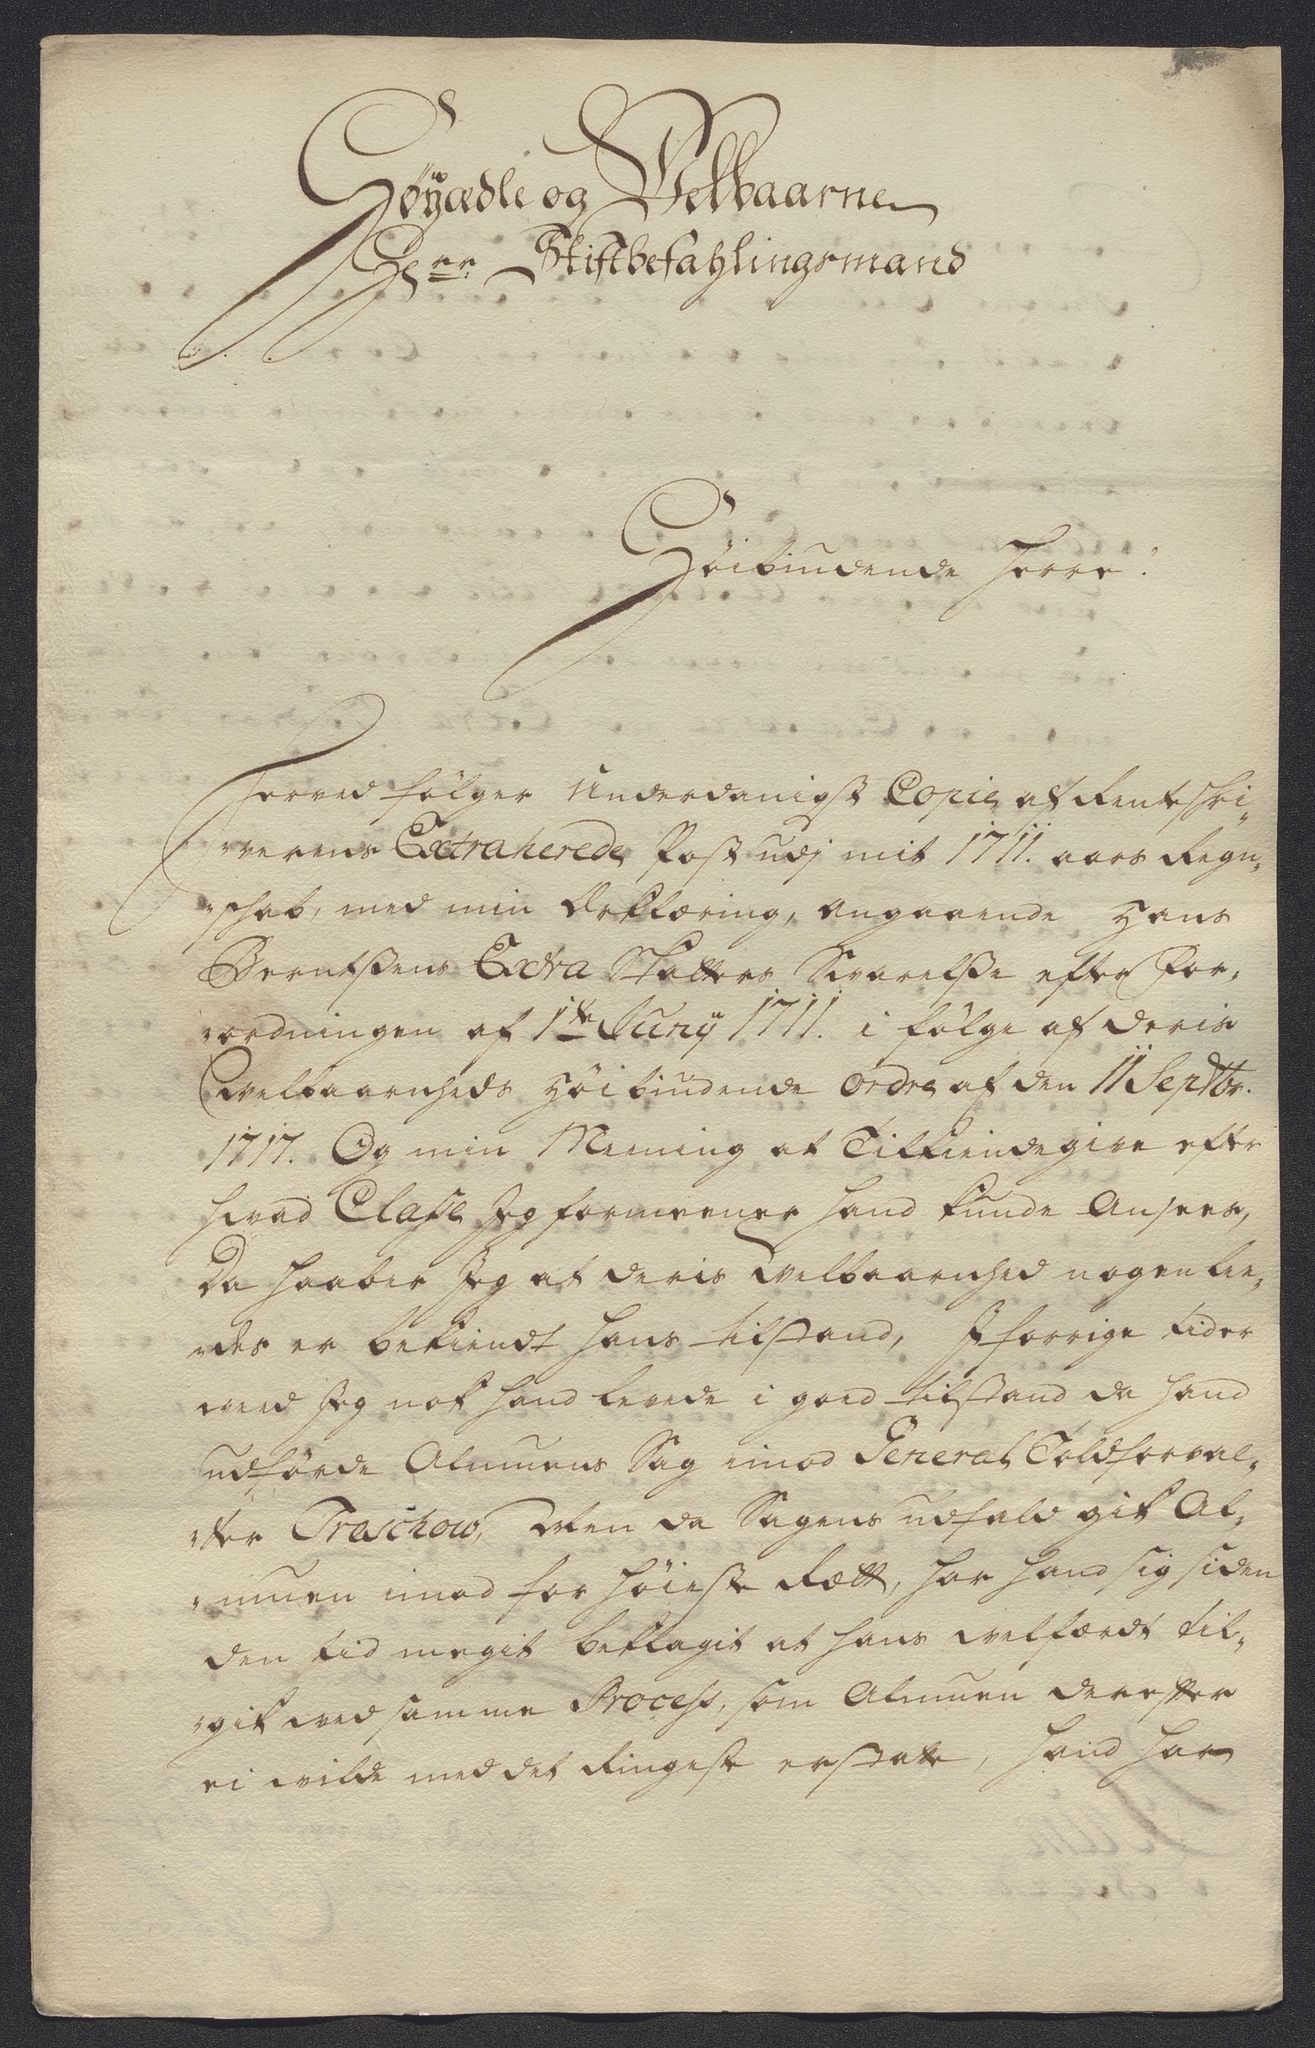 Høÿædle og Velbaarne
Herr Stiftbefahlingsmand
Høibiudende Herre!
Herved følger Underdanigst Copie af Rentschri,
"verens Extraherede Post udj mit 1711. aars Regn,
"schab, med min Erklæring, angaaende Hans
Berntsens Extra Skatters Svarelse efter For,
"ordningen af 1te Junÿ 1711. i følge af deris
Welbaarnheds Høibiudende Ordre af den 11 Septbr.
1717. Og min Meening at Tilkiendegive efter
hvad Classe Jeg formeener hand kunde Ansees,
Da haaber Jeg at deris Welbaarnhed nogenlee,
"des er bekiendt hans tilstand, J forrige tider
veed Jeg nok hand levede i goed tilstand da hand
udførde Almuens Sag imod General Toldforval,
"ter Treschow, Men da Sagens udfald gik Al,
"muen imod for høieste Rætt, har hand sig siden
den tid megit beklagit at hans velfærdt til,
"gik ved samme Process, som Almuen derefter
ei vilde med det Ringeste erstatte, hand har